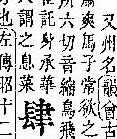 又州名韻會古
爽馬子常欲之
所六切音縮鳥飛
託身承華
肆
人謂之息菜
也左傳昭十